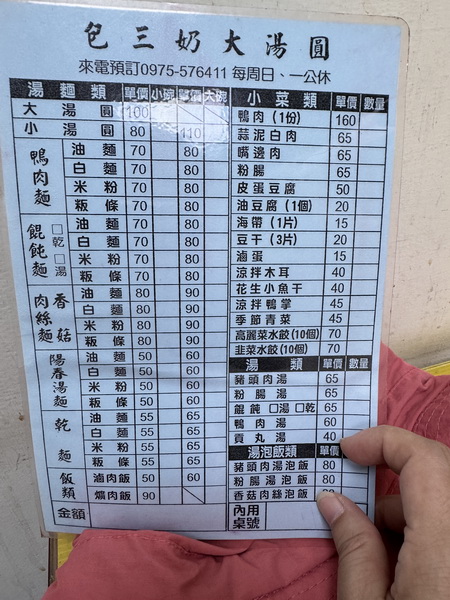 包三奶大湯圓
來電預訂0975-576411 每周日、一公休
湯麵類 單價 小碗 單價 大碗
大湯圓 100
小湯圓 80 110
鴨肉麵
油麵 70 80
白麵 70 80
米粉 70 80
粄條 70 80
餛飩麵 □乾 □湯
油麵 70 80
白麵 70 80
米粉 70 80
粄條 70 80
香菇肉絲麵
油麵 80 90
白麵 80 90
米粉 80 90
粄條 80 90
陽春湯麵
油麵 50 60
白麵 50 60
米粉 50 60
粄條 50 60
乾麵
油麵 55 65
白麵 55 65
米粉 55 65
粄條 55 65
飯類
滷肉飯 50 60
爌肉飯 90
金額
小菜類 單價 數量
鴨肉(1份) 160
蒜泥白肉 65
嘴邊肉 65
粉腸 65
皮蛋豆腐 50
油豆腐(1個) 20
海帶(1片) 15
豆干(3片) 20
滷蛋 15
涼拌木耳 40
花生小魚干 40
涼拌鴨掌 45
季節青菜 45
高麗菜水餃(10個) 70
韭菜水餃(10個) 70
湯類 單價 數量
豬頭肉湯 65
粉腸湯 65
餛飩 □湯 □乾 65
鴨肉湯 60
貢丸湯 40
湯泡飯類 單價
豬頭肉湯泡飯 80
粉腸湯泡飯 80
香菇肉絲泡飯
內用桌號